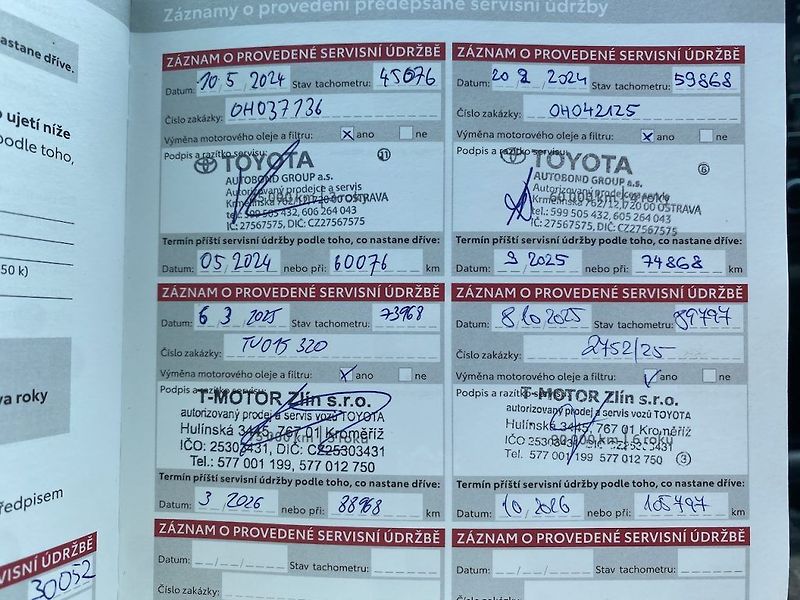 Záznamy o provedení předepsané servisní údržby
astane dříve.
o ujetí níže
podle toho,
50 k)
va roky
ředpisem
VISNÍ ÚDRŽBĚ
30052
ZÁZNAM O PROVEDENÉ SERVISNÍ ÚDRŽBĚ
Datum: 10/5/2024 Stav tachometru: 45076
Číslo zakázky: OH037736
Výměna motorového oleje a filtru: x ano ne
Podpis a razítko servisu:
TOYOTA 11
AUTOBOND GROUP a.s.
Autorizovaný prodejce a servis
Krmelínská 762/12, 720 00 OSTRAVA
tel.: 599 505 432, 606 264 043
IČ: 27567575, DIČ: CZ27567575
Termín příští servisní údržby podle toho, co nastane dříve:
Datum: 05/2024 nebo při: 60076 km
ZÁZNAM O PROVEDENÉ SERVISNÍ ÚDRŽBĚ
Datum: 20/2024 Stav tachometru: 59868
Číslo zakázky: OH042125
Výměna motorového oleje a filtru: x ano ne
Podpis a razítko servisu:
TOYOTA 6
AUTOBOND GROUP a.s.
Autorizovaný prodejce a servis
60 000 km | 4 roky
Krmelínská 762/12, 720 00 OSTRAVA
tel.: 599 505 432, 606 264 043
IČ: 27567575, DIČ: CZ27567575
Termín příští servisní údržby podle toho, co nastane dříve:
Datum: 9/2025 nebo při: 74868 km
ZÁZNAM O PROVEDENÉ SERVISNÍ ÚDRŽBĚ
Datum: 6/3/2025 Stav tachometru: 73968
Číslo zakázky: TV015 320
Výměna motorového oleje a filtru: x ano ne
Podpis a razítko servisu:
T-MOTOR Zlín s.r.o.
autorizovaný prodej a servis vozů TOYOTA
Hulínská 3445, 767 01 Kroměříž
75 000 km | 5 roků
IČO: 25303431, DIČ: CZ25303431
Tel.: 577 001 199, 577 012 750
Termín příští servisní údržby podle toho, co nastane dříve:
Datum: 3/2026 nebo při: 88968 km
ZÁZNAM O PROVEDENÉ SERVISNÍ ÚDRŽBĚ
Datum: 8/10/2025 Stav tachometru: 89797
Číslo zakázky: 2752/25
Výměna motorového oleje a filtru: ✓ ano ne
Podpis a razítko servisu:
T-MOTOR Zlín s.r.o.
autorizovaný prodej a servis vozů TOYOTA
Hulínská 3445, 767 01 Kroměříž
90 000 km | 6 roků
IČO: 25303431, DIČ: CZ25303431
Tel.: 577 001 199, 577 012 750 3
Termín příští servisní údržby podle toho, co nastane dříve:
Datum: 10/2026 nebo při: 105797 km
ZÁZNAM O PROVEDENÉ SERVISNÍ ÚDRŽBĚ
Datum: / / Stav tachometru:
Číslo zakázky:
ZÁZNAM O PROVEDENÉ SERVISNÍ ÚDRŽBĚ
Datum: / / Stav tachometru:
Číslo zakázky: